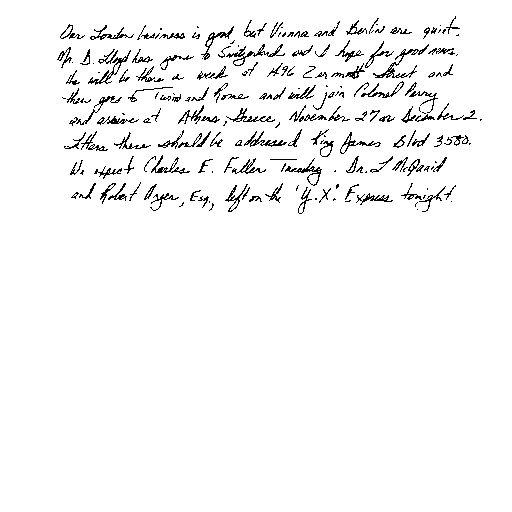 Our London business is good, but Vienna and Berlin are quiet.
Mr. D. Lloyd has gone to Switzerland and I hope for good news.
He will be there a week at 1496 Zermott Street and
then goes to Turin and Rome and will join Colonel Parry
and arrive at Athens, Greece, November 27 or December 2.
Letters there should be addressed King James Blvd 3580.
We expect Charles E. Fuller Tuesday. Dr. L McQuaid
and Robert Unger, Esq., left on the 'Y.X.' Express tonight.